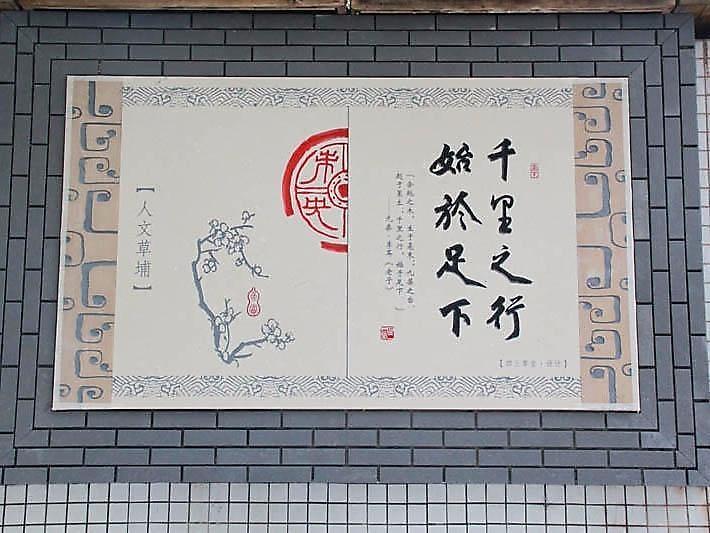 千里之行
始於足下
「合抱之木，生于毫末；九层之台，
起于累土；千里之行，始于足下。」
【人文草埔】
未央